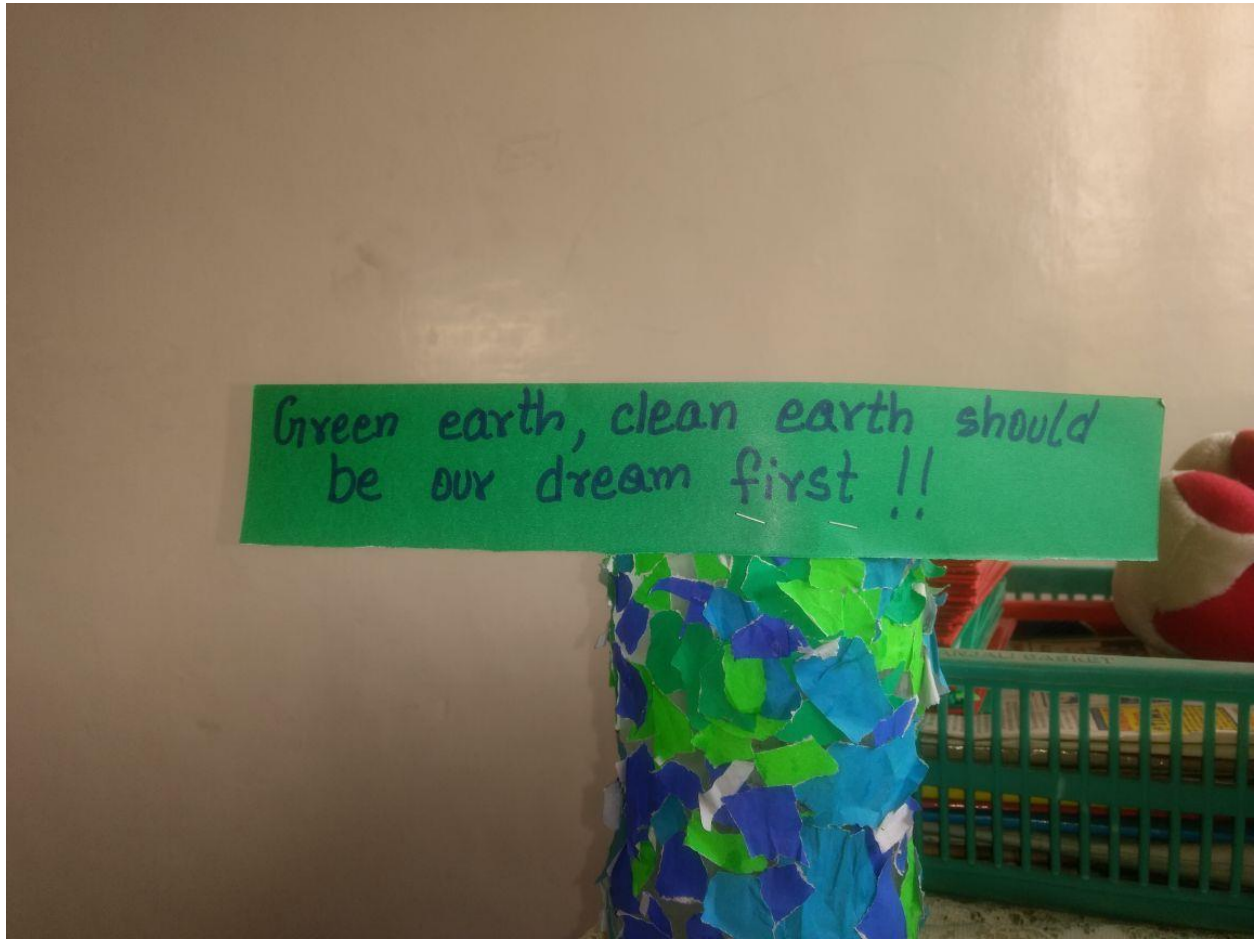 Green earth, clean earth should
be our dream first !!